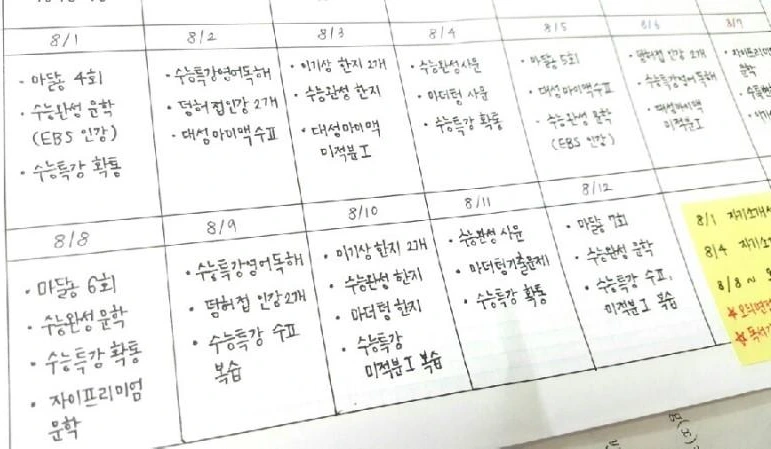 8/1
· 마닳 4회
· 수능완성 문학
(EBS 인강)
· 수능특강 확통
8/2
· 수능특강영어독해
· 덤허접인강 2개
· 대성마이맥 수프
8/3
· 이기상 한지 2개
· 수능완성 한지
· 대성마이맥
미적분 I
8/4
· 수능완성 사문
· 마더텅 사문
· 수능특강 확통
8/5
· 마닳 5회
· 대성마이맥수프
· 수능완성 문학
(EBS 인강)
8/6
· 덤허접 인강 2개
· 수능특강영어독해
· 대성마이맥
미적분 I
8/7
· 자이프리미엄
문학
8/8
· 마닳 6회
· 수능완성 문학
· 수능특강 확통
· 자이프리미엄
문학
8/9
· 수능특강영어독해
· 덤허접 인강2개
· 수능특강 수프
복습
8/10
· 이기상한지 2개
· 수능완성 한지
· 마더텅 한지
· 수능특강
미적분 I 복습
8/11
· 수능완성 사문
· 마더텅기출문제
· 수능특강 확통
8/12
· 마닳 7회
· 수능완성 문학
· 수능특강 수프,
미적분 I 복습
8/1 자기소개서
8/4 자기소
8/8 ~
g(x)